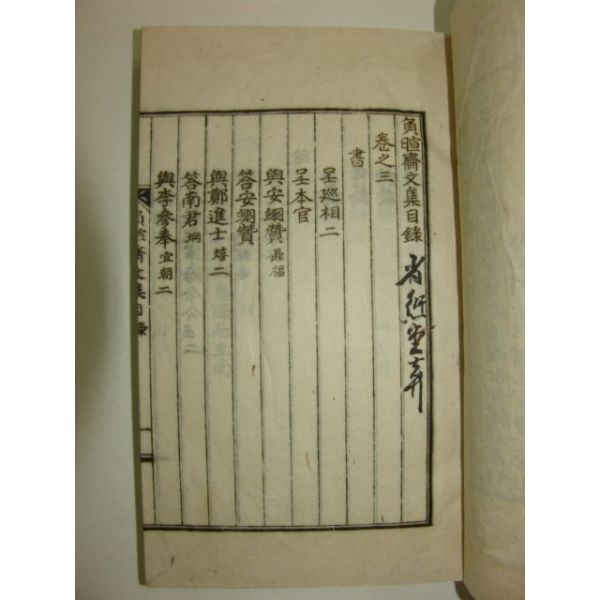 負暄齋文集目錄
卷之三
書
呈巡相二
呈本官
與安翊贊鼎福
答安翊贊
與鄭進士熺二
答南君
與李參奉宜朝二
負暄齋文集目錄